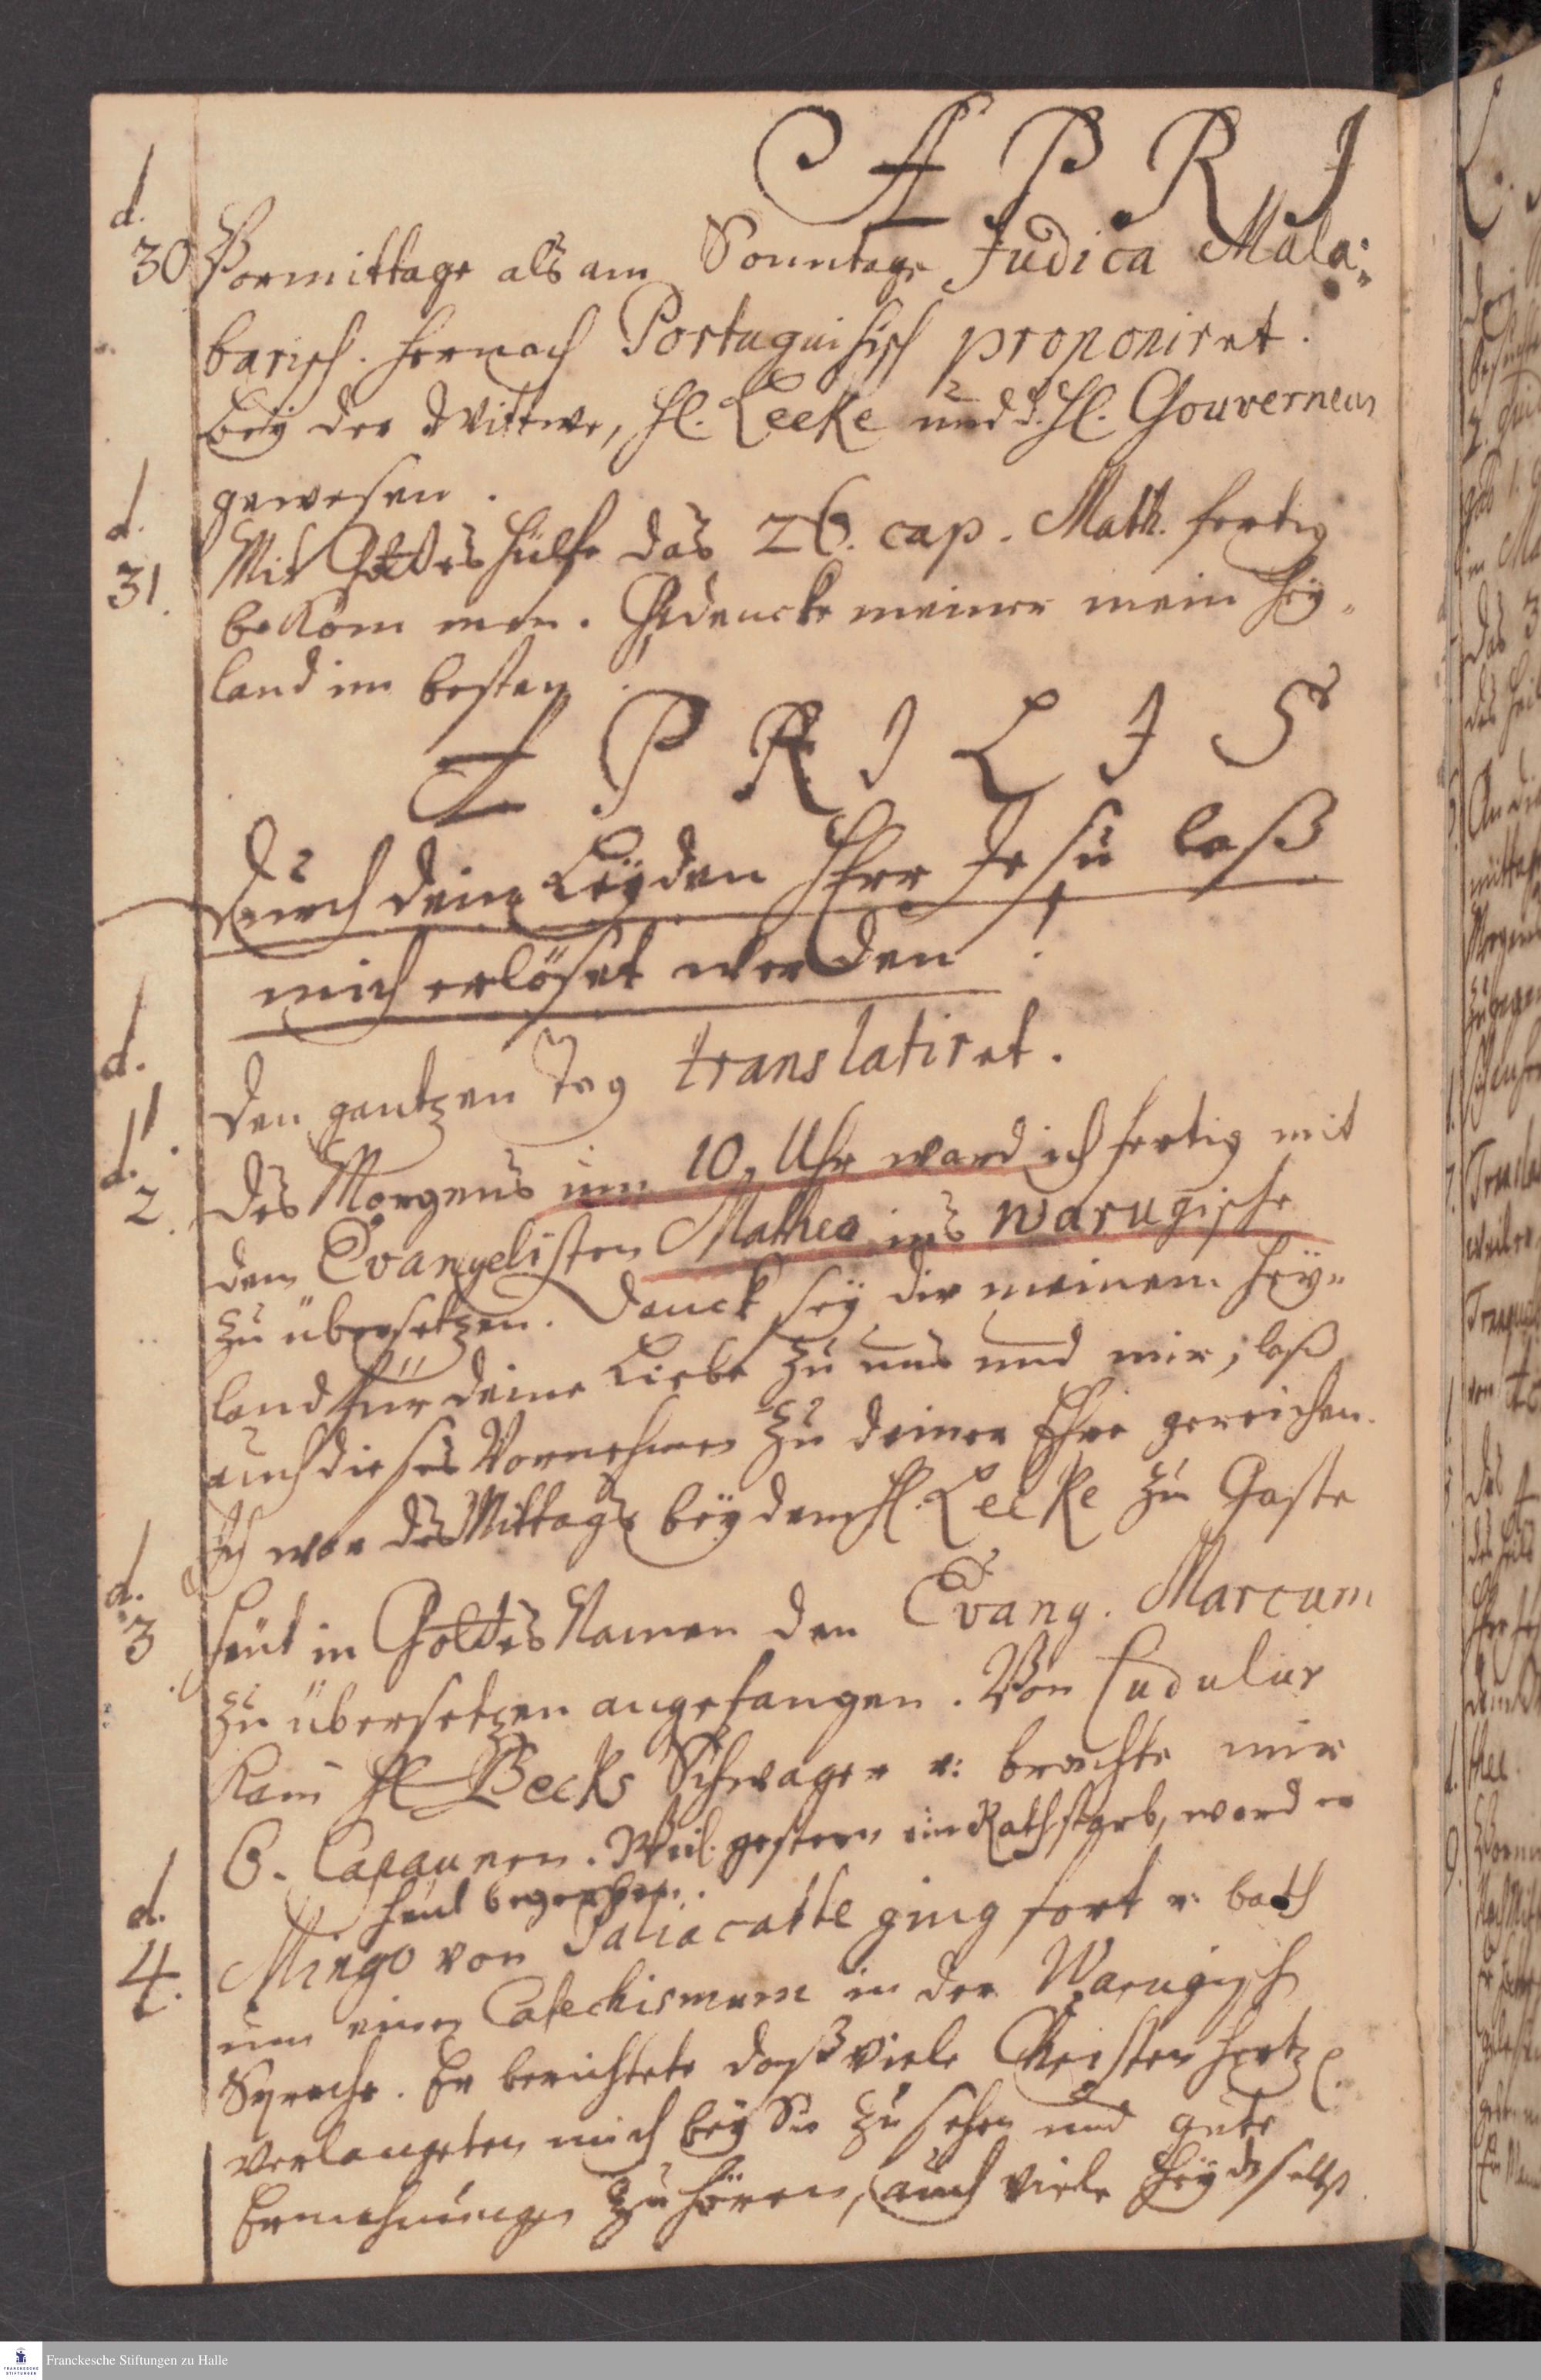 APRI
d.
30 Vormittage als am Sonntage Judica Mala:
barisch. hernach Portuguisisch proponiret.
bey der Wittwe, H. Leeke und d. H. Gouverneur
gewesen.
d.
31. Mit Gottes Hülfe das 26. cap. Math. fertig
bekommen. Gedencke meiner mein Hey=
land im besten.
APRILIS
Durch dein Leyden Herr Jesu laß
mich erlöset werden!
d.
1. Den gantzen Tag translatiret.
d.
2. Des Morgens um 10. Uhr ward ich fertig mit
dem Evangelisten Matheo ins warugische
zu übersetzen. Danck sey dir meinem Hey=
land für deine Liebe zu uns und mir, laß
auch dieses Vornehmen zu deiner Ehre gereichen.
Ich war des Mittags bey dem H. Leeke zu Gaste
d.
3. Heut in Gottes Namen den Evang. Marcum
zu übersetzen angefangen. Von Cudulur
kam H. Becks Schwager u: brachte mir
6. Capaunen. Weil gestern ein Rath starb, ward er
heut begraben.
d.
4. Mingo von Paliacatte ging fort u: bath
um einen Catechismum in der Warugisch
Sprache. Er berichtete daß viele Christen hertzl.
verlangeten mich bey Sie zu sehen und gute
Ermahnungen zu hören, auch viele Heyd. selbst.
Franckesche Stiftungen zu Halle